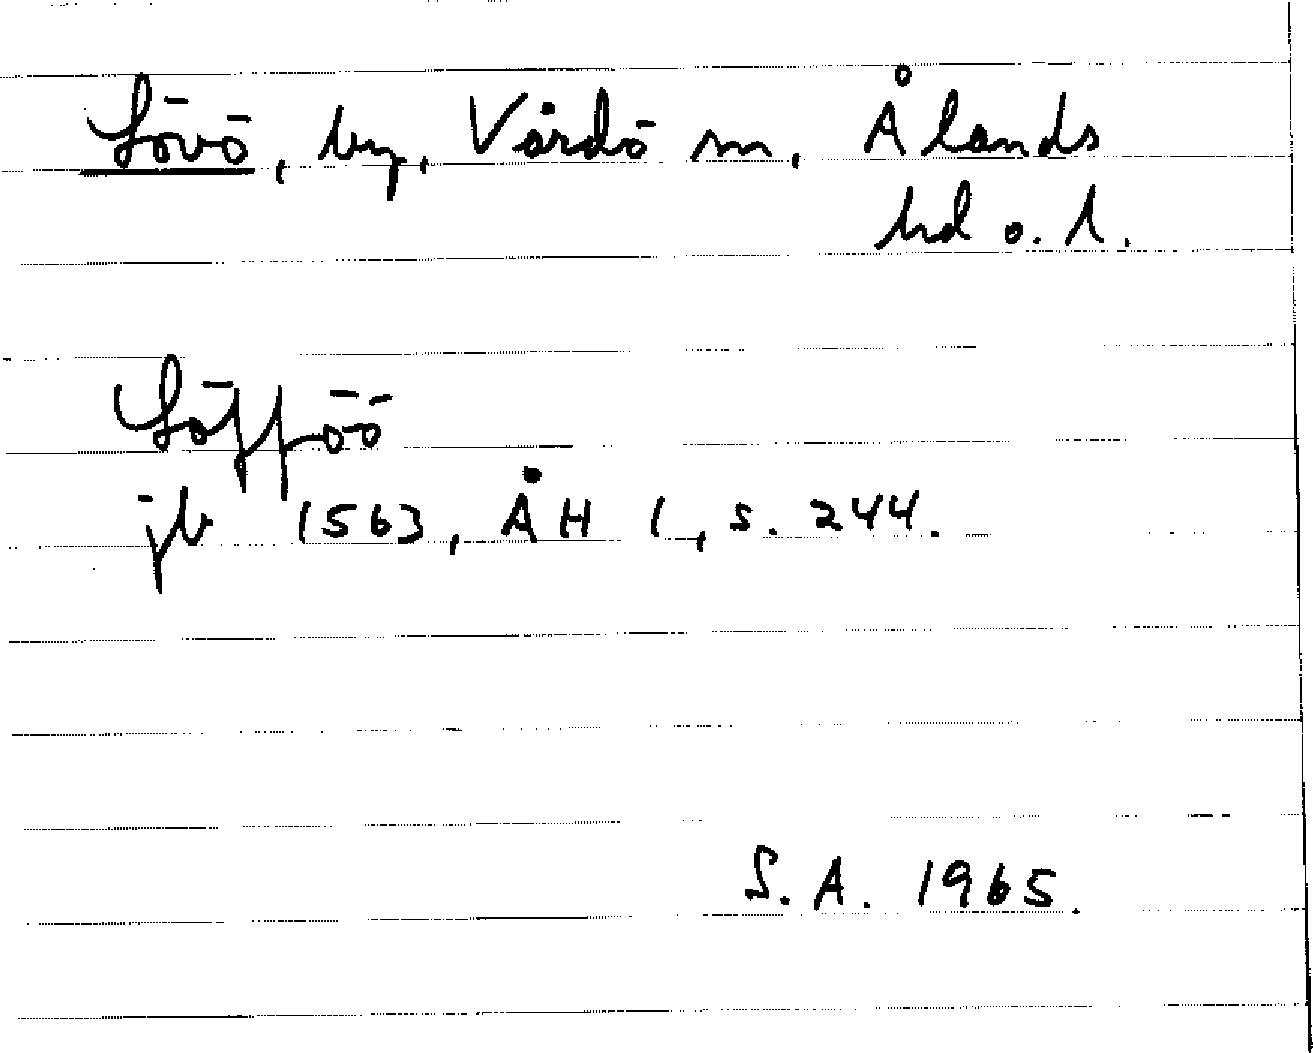 Lövö, by, Vårdö sn, Ålands
hd o. l.
Löfföö
jb 1563, ÅH 1, s. 244.
S.A. 1965.